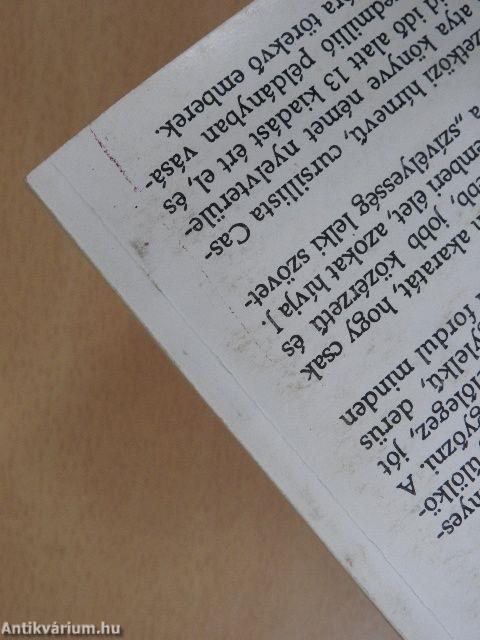 nyes-
ülölkö-
győzni. A
előlegez, jót
derűs
fordul minden
akaratát, hogy csak
jobb közérzetű és
emberi élet, azokat hívja].
a „szívélyesség lelki szövet-
hírnevű, cursillista Cas-
atya könyve német nyelvterüle-
idő alatt 13 kiadást ért el, és
példányban vásá-
törekvő emberek.
Antikvárium.hu